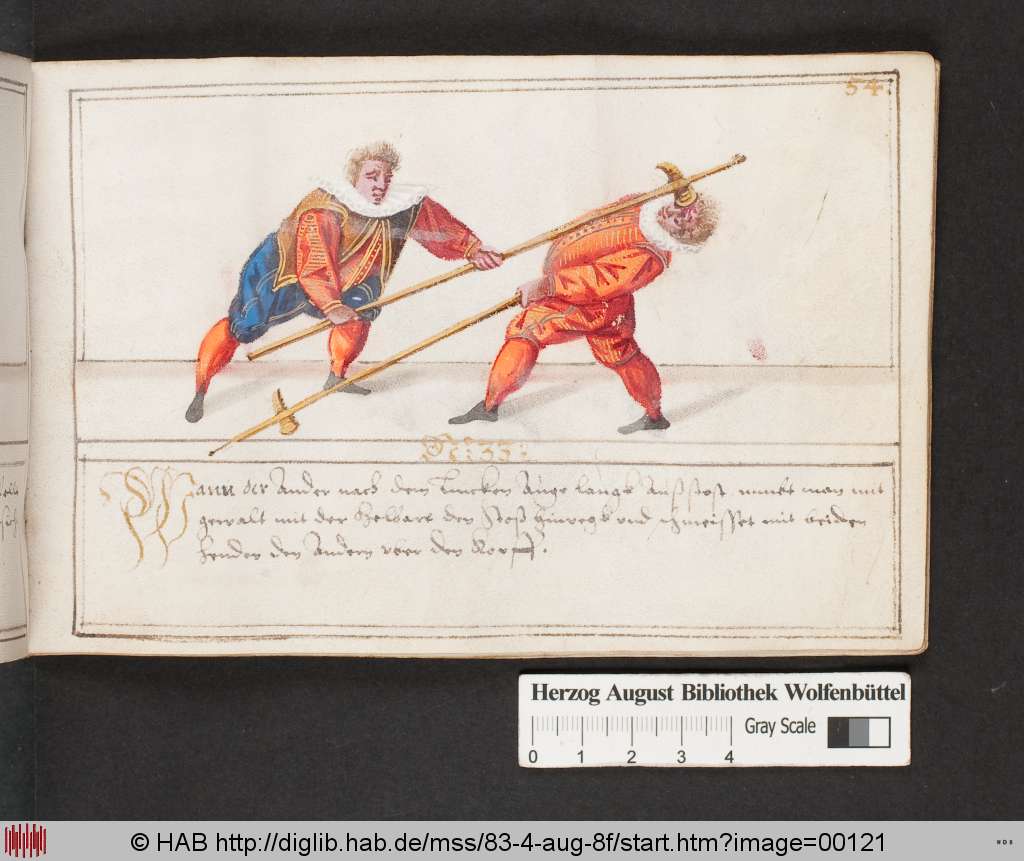 54.
N: 33:
Wann der Ander nach dem Lincken Auge langs Außstost, nimbt man mit
gewalt mit der Helbart den stoß hinwegk und schmeisset mit beiden
henden den Andern vber den Kopff.
Herzog August Bibliothek Wolfenbüttel
Gray Scale
0 1 2 3 4
© HAB http://diglib.hab.de/mss/83-4-aug-8f/start.htm?image=00121